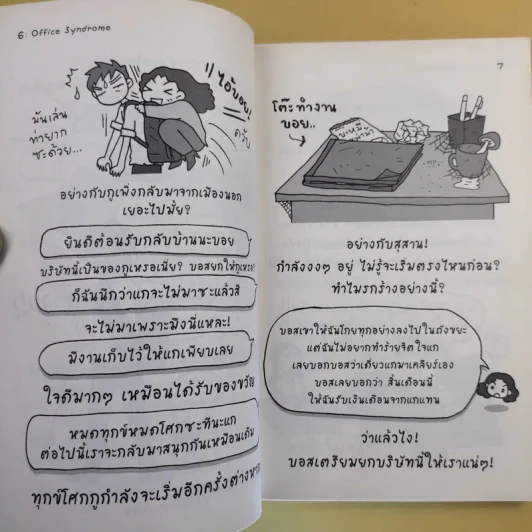 6: Office Syndrome
ไอ้บอย!
ครับ
มันเล่น
ท่ายาก
ซะด้วย...
อย่างกับกูเพิ่งกลับมาจากเมืองนอก
เยอะไปมั้ย?
ยินดีต้อนรับกลับบ้านนะบอย
บริษัทนี้เป็นของกูเหรอเนี่ย? บอสยกให้กูเหรอ?
ก็ฉันนึกว่าแกจะไม่มาซะแล้วสิ
จะไม่มาเพราะมึงนี่แหละ!
มีงานเก็บไว้ให้แกเพียบเลย
ใจดีมากๆ เหมือนได้รับของขวัญ
หมดทุกข์หมดโศกซะทีนะแก
ต่อไปนี้เราจะกลับมาสนุกกันเหมือนเดิม
ทุกข์โศกกูกำลังจะเริ่มอีกครั้งต่างหาก
7
โต๊ะทำงาน
บอย..
อย่างกับสุสาน!
กำลังงงๆ อยู่ ไม่รู้จะเริ่มตรงไหนก่อน?
ทำไมรกร้างอย่างนี้?
บอสเขาให้ฉันโกยทุกอย่างลงไปในถังขยะ
แต่ฉันไม่อยากทำร้ายจิตใจแก
เลยบอกบอสว่าเดี๋ยวแกมาเคลียร์เอง
บอสเลยบอกว่า สิ้นเดือนนี้
ให้ฉันรับเงินเดือนจากแกแทน
ว่าแล้วไง!
บอสเตรียมยกบริษัทนี้ให้เราแน่ๆ!